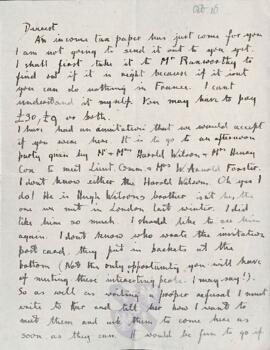 Oct 16
Dearest.
An income tax paper has just come for you
I am not going to send it out to you yet.
I shall first take it to Mr Ranworthy to
find out if it is right because if it isnt
you can do nothing in France. I cant
understand it myself. You may have to pay
£30, £9 or both.
I have had an invitation that we would accept
if you were here. It is to go to an afternoon
party given by Mr & Mrs Harold Wilson & Mrs Henry
Cox to meet Lieut. Comm & Mrs W. Arnold Forster.
I don't know either the Harold Wilson. Oh yes I
do! He is Hugh Wilsons brother isnt he the
one we met in London last winter. I did
like him so much. I should like to see him
again. I don't know who wrote the invitation
post card. They put in brackets at the
bottom (Not the only opportunity you will have
of meeting these interesting people. I may say!).
So as well as writing a proper refusal I must
write to her and tell her how I want to
meet them and ask them to come here as
soon as they can. It would be fun to go if